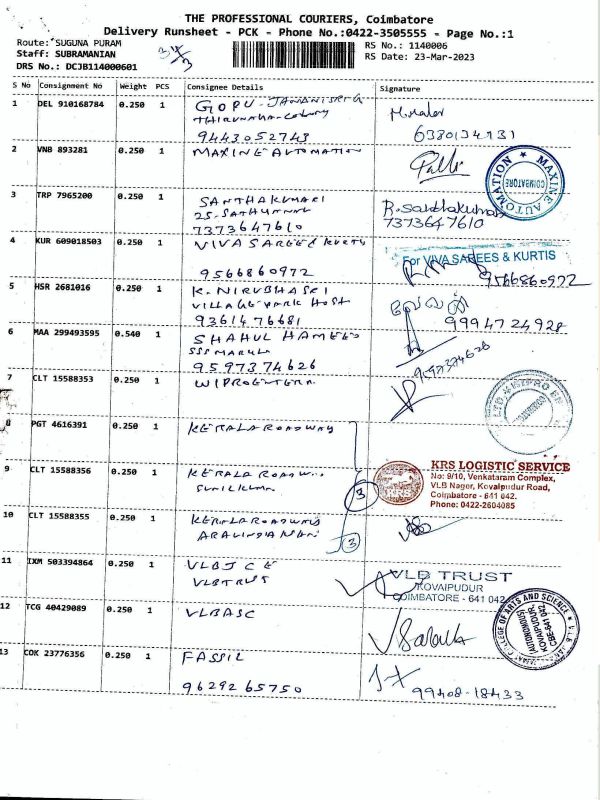 THE PROFESSIONAL COURIERS, Coimbatore
Delivery Runsheet - PCK - Phone No.:0422-3505555 - Page No.:1
Route: SUGUNA PURAM
Staff: SUBRAMANIAN
DRS No.: DCJB114000601
RS No.: 1140006
RS Date: 23-Mar-2023
S No Consignment No Weight PCS Consignee Details Signature
1 DEL 910168784 0.250 1 GOPU-JANANI SRI G
9443052743
2 VNB 893281 0.250 1 MAXINE AUTOMATION
MAXINE AUTOMATION COIMBATORE
3 TRP 7965200 0.250 1 SANTHAKUMARI
7373647610
R. Santhakumari
7373647610
4 KUR 609018503 0.250 1 VIVA SAREE & KURTIS
9566860972
For VIVA SAREES & KURTIS
9566860972
5 HSR 2681016 0.250 1 K. NIRUBHASRI
VILLAGE PARK HOST
9361476681
9994724928
6 MAA 299493595 0.540 1 SHAHUL HAMEED
9597374626
9597374626
7 CLT 15588353 0.250 1
8 PGT 4616391 0.250 1 KERALA ROADWAY
9 CLT 15588356 0.250 1 KERALA ROADWAY
3
KRS LOGISTIC SERVICE
No: 9/10, Venkataram Complex,
VLB Nagar, Kovaipudur Road,
Coimbatore - 641 042.
Phone: 0422-2604085
10 CLT 15588355 0.250 1 KERALA ROADWAYS
3
11 IXM 503394864 0.250 1 VLBJCE
VLB TRUST
VLB TRUST
KOVAIPUDUR
COIMBATORE - 641 042
12 TCG 40429089 0.250 1 VLBASC
COLLEGE OF ARTS AND SCIENCE
(AUTONOMOUS)
KOVAIPUDUR,
CBE-641 042
13 COK 23776356 0.250 1 FASSIL
9629265750
99408-18433